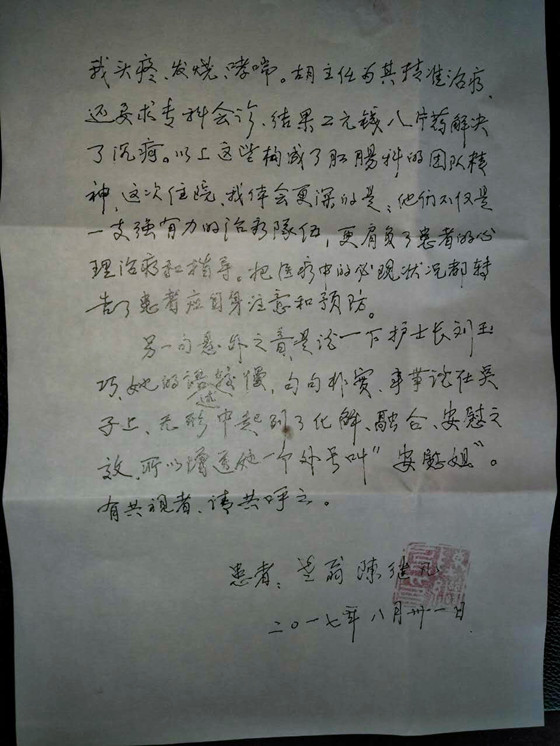 我头疼、发烧、哮喘。胡主任为其精准治疗,
还要求专科会诊、结果2元钱八片药解决
了沉疴。以上这些构成了肛肠科的团队精
神 这次住院、我体会更深的是:他们不仅是
一支强有力的治疗隊伍,更肩负了患者的心
理治疗和指导。把医疗中的必现状况都转
告了患者应自身注意和预防。
另一句意外之音是说一下护士长刘玉
巧,她的语速缓慢,句句朴实、事事说在点
子上、无形中起到了化解、融合、安慰之
效,所以增送她一个外号叫"安慰姐"。
有共视者、请共呼之。
患者: 翁 陈继
二〇一七年八月卅一日